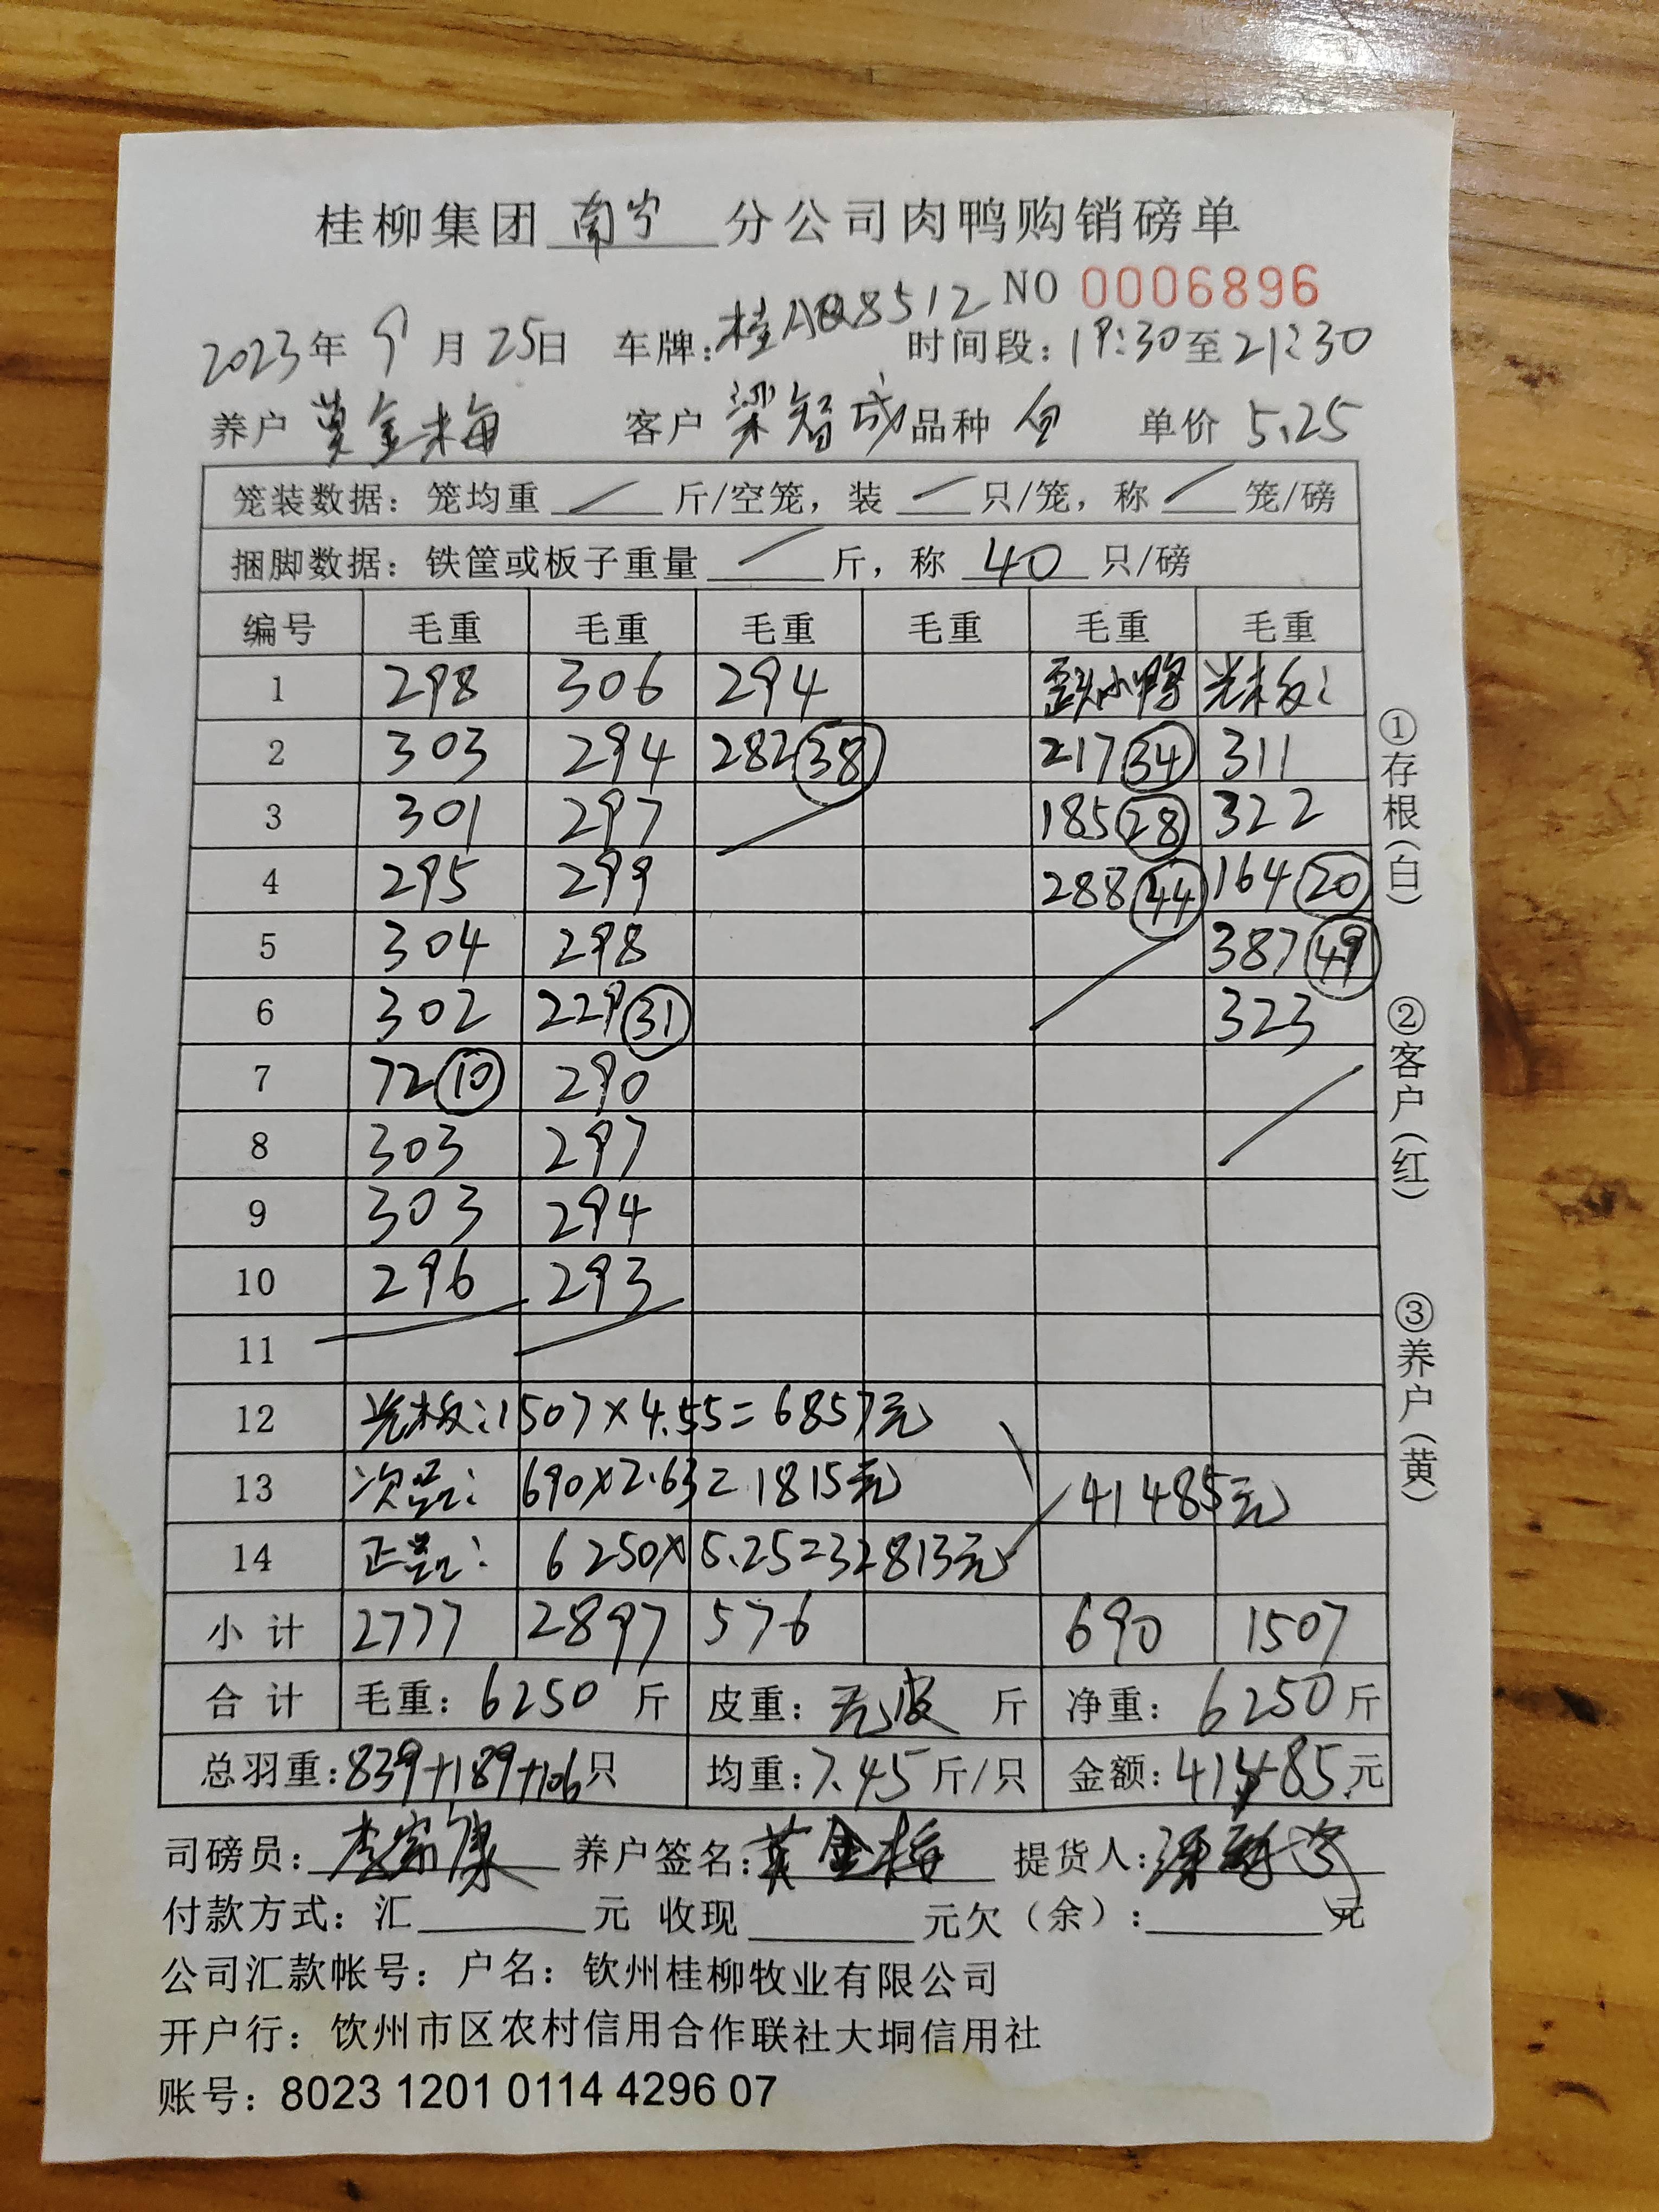 桂柳集团 南宁 分公司肉鸭购销磅单
NO 0006896
2023年 9月 25日 车牌:桂AQ8512 时间段:19:30至21:30
养户 黄金梅 客户 梁智成 品种 仓 单价 5.25
笼装数据:笼均重 / 斤/空笼,装 / 只/笼,称 / 笼/磅
捆脚数据:铁筐或板子重量 / 斤,称 40 只/磅
编号 毛重 毛重 毛重 毛重 毛重 毛重
1 298 306 294 歪头小鸭 光板:
2 303 294 282 38 217 34 311
3 301 297 185 28 322
4 295 299 288 44 164 20
5 304 298 387 49
6 302 229 31 323
7 72 10 290
8 303 297
9 303 294
10 296 293
11
12 光板:1507×4.55=6857元
13 次品:690×2.63=1815元 41485元
14 正品:6250×5.25=32813元
小计 2777 2897 576 690 1507
合计 毛重:6250 斤 皮重:无皮 斤 净重:6250斤
总羽重:839+189+106只 均重:7.45斤/只 金额:41485元
司磅员: 养户签名:黄金梅 提货人:
付款方式:汇 元 收现 元欠(余): 元
公司汇款帐号:户名:钦州桂柳牧业有限公司
开户行:饮州市区农村信用合作联社大垌信用社
账号:8023 1201 0114 4296 07
①存根(白)
②客户(红)
③养户(黄)